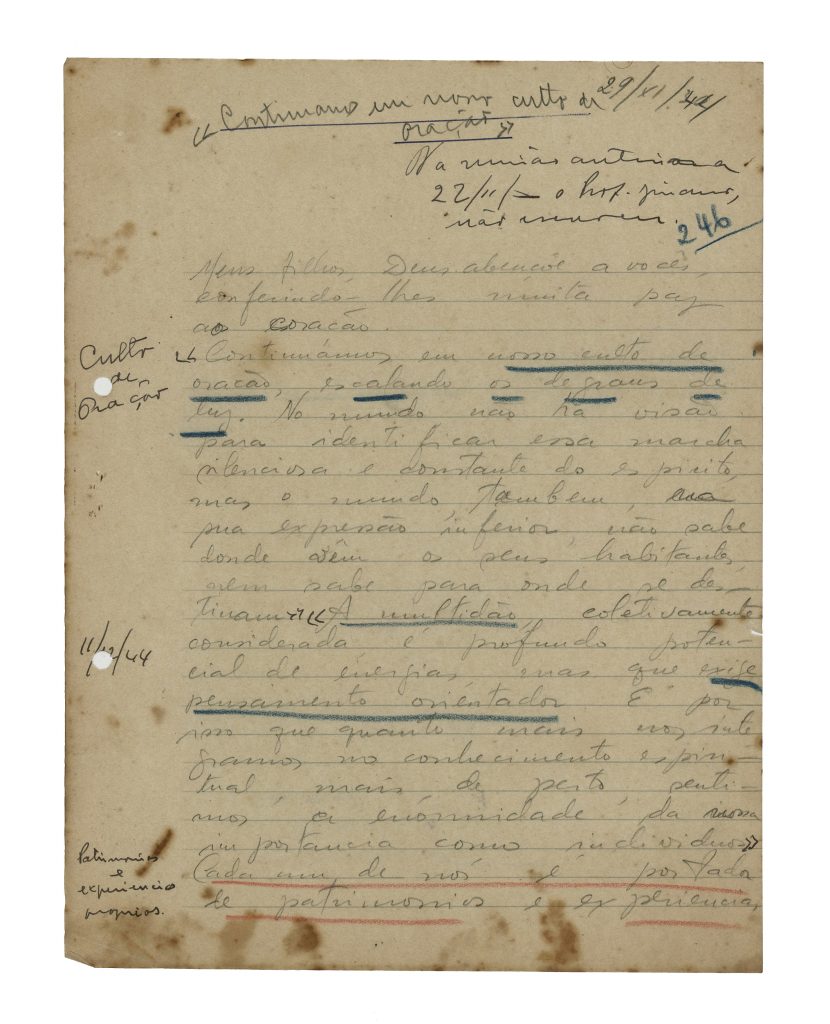 29/XI/44
« Continuamos em nosso culto de
oração »
Na reunião anterior a
22/11/— o Prof.
não
246
Meus filhos, Deus abençoe a vocês,
conferindo-lhes muita paz
ao coração.
Culto
de
Oração
« Continuámos em nosso culto de
oração, escalando os degraus de
luz. No mundo não há visão
para identificar essa marcha
silenciosa e constante do espirito,
mas o mundo, tambem, na
sua expressão inferior, não sabe
donde vêm os seus habitantes,
nem sabe para onde se des-
tinam» «A multidão, coletivamente
considerada, é profundo poten-
cial de energias, mas que exige
11/12/44
pensamento orientador. É por
isso que quanto mais nos inte
gramos no conhecimento espiri-
tual, mais de perto, senti-
mos a enormidade da nossa
importancia como individuos»
Patrimonios
e
experiencias
proprios.
Cada um de nós é portador
de patrimonios e experiencias,